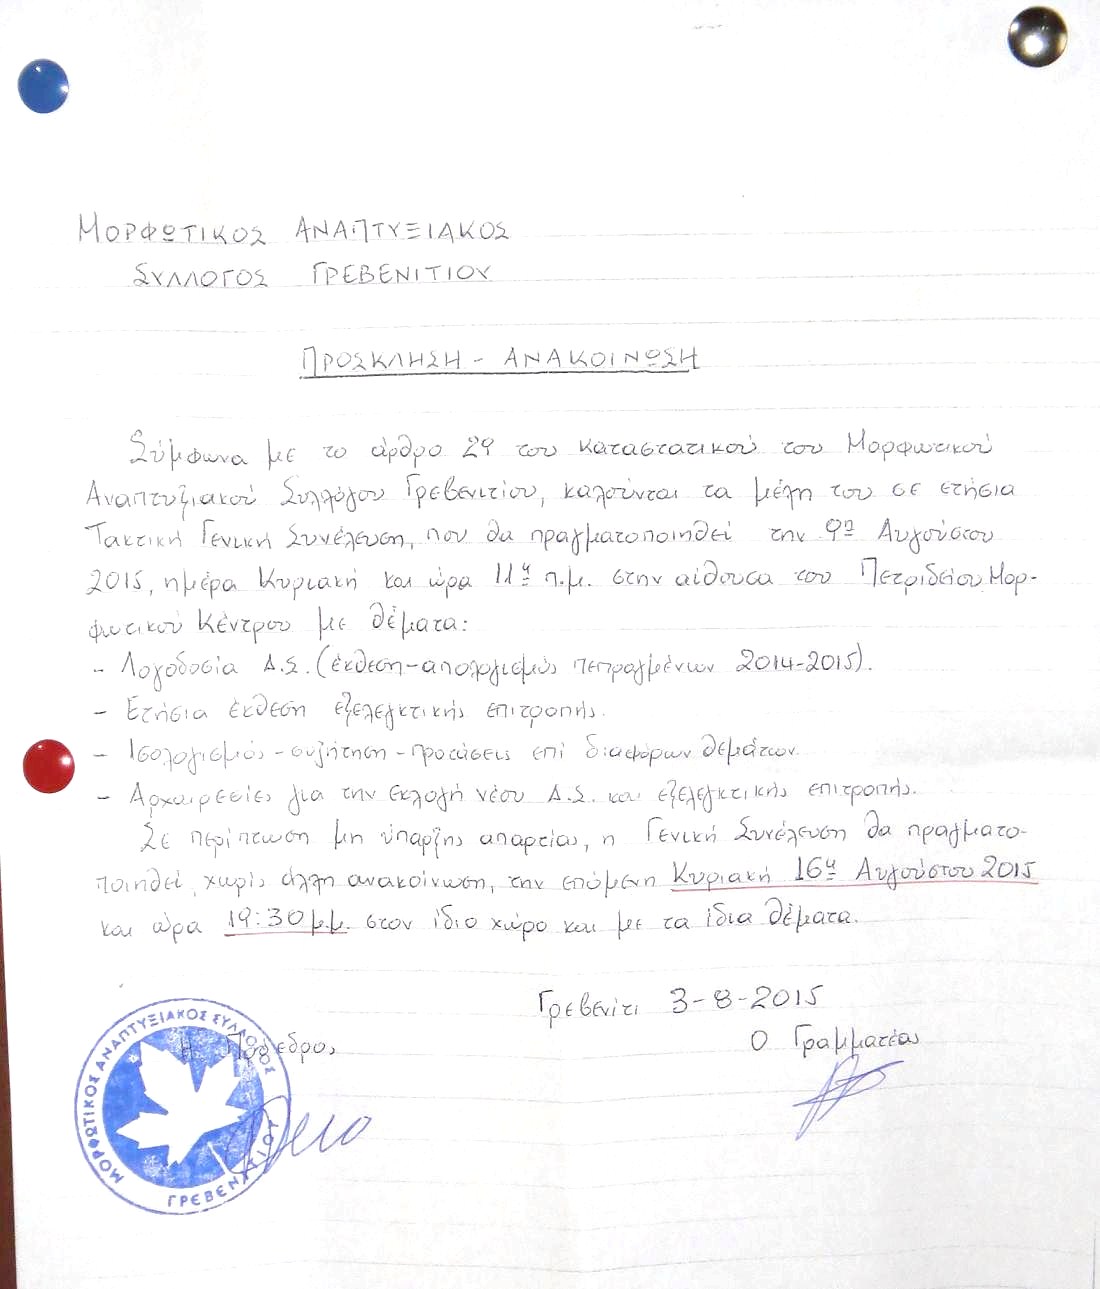 ΜΟΡΦΩΤΙΚΟΣ ΑΝΑΠΤΥΞΙΑΚΟΣ
ΣΥΛΛΟΓΟΣ ΓΡΕΒΕΝΙΤΙΟΥ
ΠΡΟΣΚΛΗΣΗ - ΑΝΑΚΟΙΝΩΣΗ
Σύμφωνα με το άρθρο 29 του καταστατικού του Μορφωτικού
Αναπτυξιακού Συλλόγου Γρεβενιτίου, καλούνται τα μέλη του σε ετήσια
Τακτική Γενική Συνέλευση, που θα πραγματοποιηθεί την 9η Αυγούστου
2015, ημέρα Κυριακή και ώρα 11η π.μ. στην αίθουσα του Πετριδείου Μορ-
φωτικού Κέντρου με θέματα:
- Λογοδοσία Δ.Σ. (έκθεση-απολογισμός πεπραγμένων 2014-2015).
- Ετήσια έκθεση εξελεγκτικής επιτροπής.
- Ισολογισμός - συζήτηση - προτάσεις επί διαφόρων θεμάτων.
- Αρχαιρεσίες για την εκλογή νέου Δ.Σ. και εξελεγκτικής επιτροπής.
Σε περίπτωση μη ύπαρξης απαρτίας, η Γενική Συνέλευση θα πραγματο-
ποιηθεί, χωρίς άλλη ανακοίνωση, την επόμενη Κυριακή 16η Αυγούστου 2015
και ώρα 19:30 μ.μ. στον ίδιο χώρο και με τα ίδια θέματα.
Γρεβενίτι 3-8-2015
Η Πρόεδρος
Ο Γραμματέας
ΜΟΡΦΩΤΙΚΟΣ ΑΝΑΠΤΥΞΙΑΚΟΣ ΣΥΛΛΟΓΟΣ
ΓΡΕΒΕΝΙΤΙΟΥ